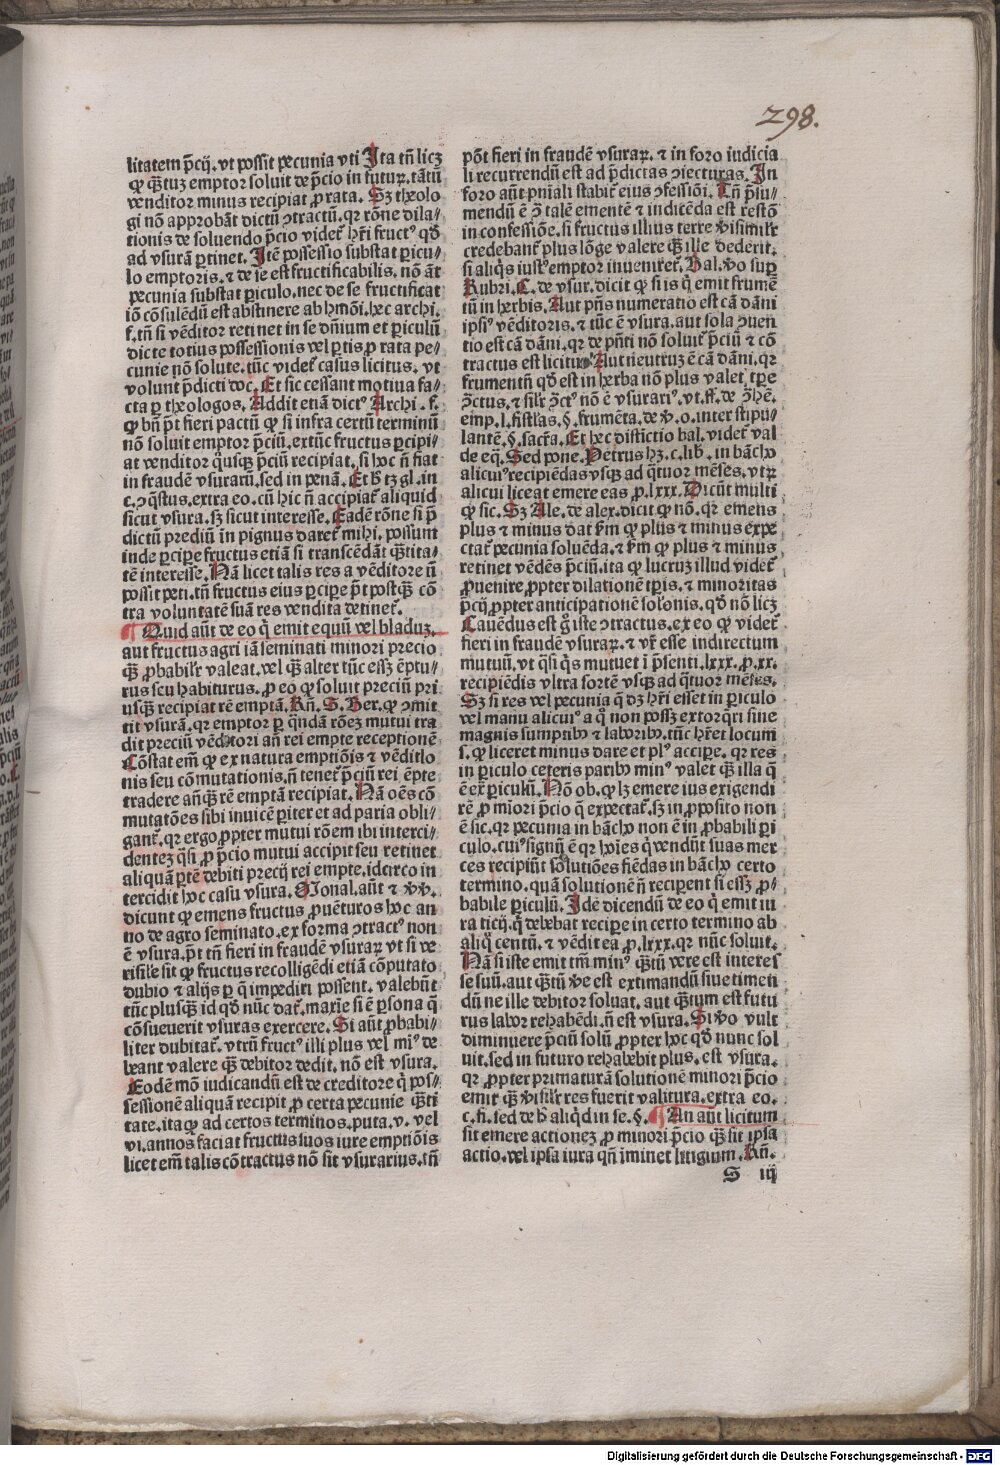 298.
litatem p̄cij. vt possit pecunia vti Ita tn̄ licꝫ
ꝙ qr̄tuꝫ emptor soluit de p̄cio in futuꝝ. tātū
venditor minus recipiat ꝓ rata. Sꝫ theolo
gi nō approbāt dictū ↄtractū. qꝛ rōne dila/
tionis de soluendo p̄cio videt᷑ hr̄i fructꝰ qd̄
ad vsurā ꝑtinet. Itē possessio substat ꝑicu/
lo emptoris. ⁊ de se est fructificabilis. nō āt
pecunia substat ꝑiculo. nec de se fructificat
iō cōsulēdū est abstinere ab hmōi. hec archi.
f. tn̄ si vēditor retinet in se dn̄ium et ꝑiculū
dicte totius possessionis vel ꝑtis ꝓ rata pe/
cunie nō solute. tūc videt᷑ casus licitus. vt
volunt p̄dicti doc. Et sic cessant motiua fa/
cta ꝑ theologos. Addit etiā dictꝰ Archi. f.
ꝙ bn̄ p̄t fieri pactū ꝙ si infra certū terminū
nō soluit emptor p̄ciū. extūc fructus ꝑcipi/
at venditor qͥusqꝫ p̄ciū recipiat. si hoc n̄ fiat
in fraudē vsuraꝝ. sed in penā. Et b̄ tꝫ gl. in
c. ↄq̄stus. extra eo. cū hic n̄ accipiat᷑ aliquid
sicut vsura. sꝫ sicut interesse. Eadē rōne si p̄
dictū prediū in pignus daret᷑ mihi. possum
inde ꝑcipere fructus etiā si transcēdāt qr̄tita/
tē interesse. Nā licet talis res a vēditore n̄
possit peti. tn̄ fructus eius ꝑcipe p̄t postqꝫ cō
tra voluntatē suā res vendita detinet᷑.
¶ Quid aūt de eo qͥ emit equū vel bladuꝫ.
aut fructus agri iā seminati minori precio
qꝫ ꝓbabilr̄ valeat. vel qꝫ alter tūc essꝫ ēptu/
rus seu habiturus. ꝓ eo ꝙ soluit preciū pri
usqꝫ recipiat rē emptā. Rn̄. S. Ber. ꝙ ↄmit
tit vsurā. qꝛ emptor ꝑ qn̄dā rōeꝫ mutui tra
dit preciū vēditori an̄ rei empte receptionē
Cōstat em̄ ꝙ ex natura emptiōis ⁊ vēditio
nis seu cōmutationis. n̄ tenet᷑ p̄ciū rei ēpte
tradere an̄qꝫ rē emptā recipiat. Nā oēs cō
mutatōes sibi inuicē ꝑiter et ad paria obli/
gant᷑. qꝛ ergo ꝓpter mutui rōem ibi interci/
denteꝫ qͣsi ꝓ p̄cio mutui accipit seu retinet
aliquā ꝑtē debiti precij rei empte. idcirco in
tercidit hoc casu vsura. Monal. aūt ⁊ ꝟꝟ.
dicunt ꝙ emens fructus ꝓuēturos hoc an
no de agro seminato. ex forma ↄtractꝰ non
ē vsura. p̄t tn̄ fieri in fraudē vsuraꝝ vt si ve
risile sit ꝙ fructus recolligēdi etiā cōputato
dubio ⁊ alijs ꝑ q̄ impediri possent. valebūt
tūc plusqꝫ id qd̄ nūc dat᷑. maxīe si ē ꝑsona q̄
cōsueuerit vsuras exercere. Si aūt ꝓbabi/
liter dubitat᷑. vtrū fructꝰ illi plus vel miꝰ de
beant valere qꝫ debitor dedit. nō est vsura.
Eodē mō iudicandū est de creditore qͥ pos/
sessionē aliquā recipit ꝓ certa pecunie qr̄ti
tate. ita ꝙ ad certos terminos. puta. v. vel
vi. annos faciat fructus suos iure emptiōis
licet em̄ talis cōtractus nō sit vsurarius. tn̄
pōt fieri in fraudē vsuraꝝ. ⁊ in foro iudicia
li recurrendū est ad p̄dictas ↄiecturas. In
foro aūt pn̄iali stabit᷑ eius ↄfessiōi. Tn̄ p̄su/
mendū ē ↄ̄ talē ementē ⁊ indicēda est restō
in confessiōe. si fructus illius terre ꝟisimilr̄
credebant᷑ plus lōge valere qꝫ ille dederit.
si aliqͥs iustꝰ emptor inueniret᷑. Bal. ꝟo suꝑ
Rubri. C. de vsur. dicit ꝙ si is qͥ emit frumē
tū in herbis. Aut pn̄s numeratio est cā dāni
ipsiꝰ vēditoris. ⁊ tūc ē vsura. aut sola ↄuen
tio est cā dāni. qꝛ de pn̄ti nō soluit᷑ p̄ciū ⁊ cō
tractus est licitus. Aut neutruꝫ ē cā dāni. qꝛ
frumentū qd̄ est in herba nō plus valet tꝑe
ↄ̄ctus. ⁊ silr̄ ↄ̄ctꝰ nō ē vsurariꝰ. vt. ff. de ↄ̄hē.
emp. l. fistlas. §. frumēta. de ꝟ. o. inter stipu
lantē. §. sacrā. Et hec distictio bal. videt᷑ val
de eq̄. Sed pone. Petrus hꝫ. c. lib. in bācho
alicuiꝰ recipiēdas vsqꝫ ad qͣtuor mēses. vtꝝ
alicui liceat emere eas ꝓ. lxxx. Dicūt multi
ꝙ sic. Sꝫ Ale. de alex. dicit ꝙ nō. qꝛ emens
plus ⁊ minus dat ẜm ꝙ plus ⁊ minus expe
ctat᷑ pecunia soluēda. ⁊ ẜm ꝙ plus ⁊ minus
retinet vēdēs p̄ciū. ita ꝙ lucruꝫ illud videt᷑
ꝓuenire ꝓpter dilationē tꝑis. ⁊ minoritas
p̄cij ꝓpter anticipationē solonis. qd̄ nō licꝫ
Cauēdus est gͦ iste ↄtractus. ex eo ꝙ videt᷑
fieri in fraudē vsuraꝝ. ⁊ vr̄ esse indirectum
mutuū. vt qͣsi qͥs mutuet ī p̄senti. lxxx. ꝓ. xx.
recipiēdis vltra sortē vsqꝫ ad qͣtuor mēses.
Sꝫ si res vel pecunia q̄ dꝫ hr̄i esset in ꝑiculo
vel manu alicuiꝰ a qͦ non possꝫ extorqͣri sine
magnis sumptibꝰ ⁊ laboribꝰ. tūc hr̄et locum
s. ꝙ liceret minus dare et plꝰ accipe. qꝛ res
in ꝑiculo ceteris paribꝰ minꝰ valet qꝫ illa q̄
ē ext̄ ꝑiculū. Nō ob. ꝙ lꝫ emere ius exigendi
rē ꝓ miori p̄cio q̄ expectat᷑. sꝫ in ꝓposito non
ē sic. qꝛ pecunia in bācho non ē in ꝓbabili ꝑi
culo. cuiꝰ signū ē qꝛ hoīes qͥ vendūt suas mer
ces recipiūt solutiōes fiēdas in bācho certo
termino. quā solutionē n̄ reciperent si essꝫ ꝓ/
babile ꝑiculū. Idē dicendū de eo qͥ emit iu
ra ticij. qͥ debebat recipe in certo termino ab
aliqͦ centū. ⁊ vēdit ea ꝓ. lxxx. qꝛ nūc soluit.
Nā si iste emit tm̄ minꝰ qr̄tū vere est interes
se suū. aut qr̄tū ꝟe est extimandū siue timen
dū ne ille debitor soluat. aut qr̄tum est futu
rus labor rehabēdi. n̄ est vsura. Si ꝟo vult
diminuere p̄ciū solū ꝓpter hoc qd̄ nunc sol
uit. sed in futuro rehabebit plus. est vsura.
qꝛ ꝓpter primaturā solutionē minori p̄cio
emit qꝫ ꝟisilr̄ res fuerit valitura. extra eo.
c. fi. sed de b̄ aliqͥd in se. §. ¶ An aūt licitum
sit emere actioneꝫ ꝓ minori p̄cio qꝫ sit ipsa
actio. vel ipsa iura qn̄ īminet litigium. Rn̄.
S iij
Digitalisierung gefördert durch die Deutsche Forschungsgemeinschaft - DFG